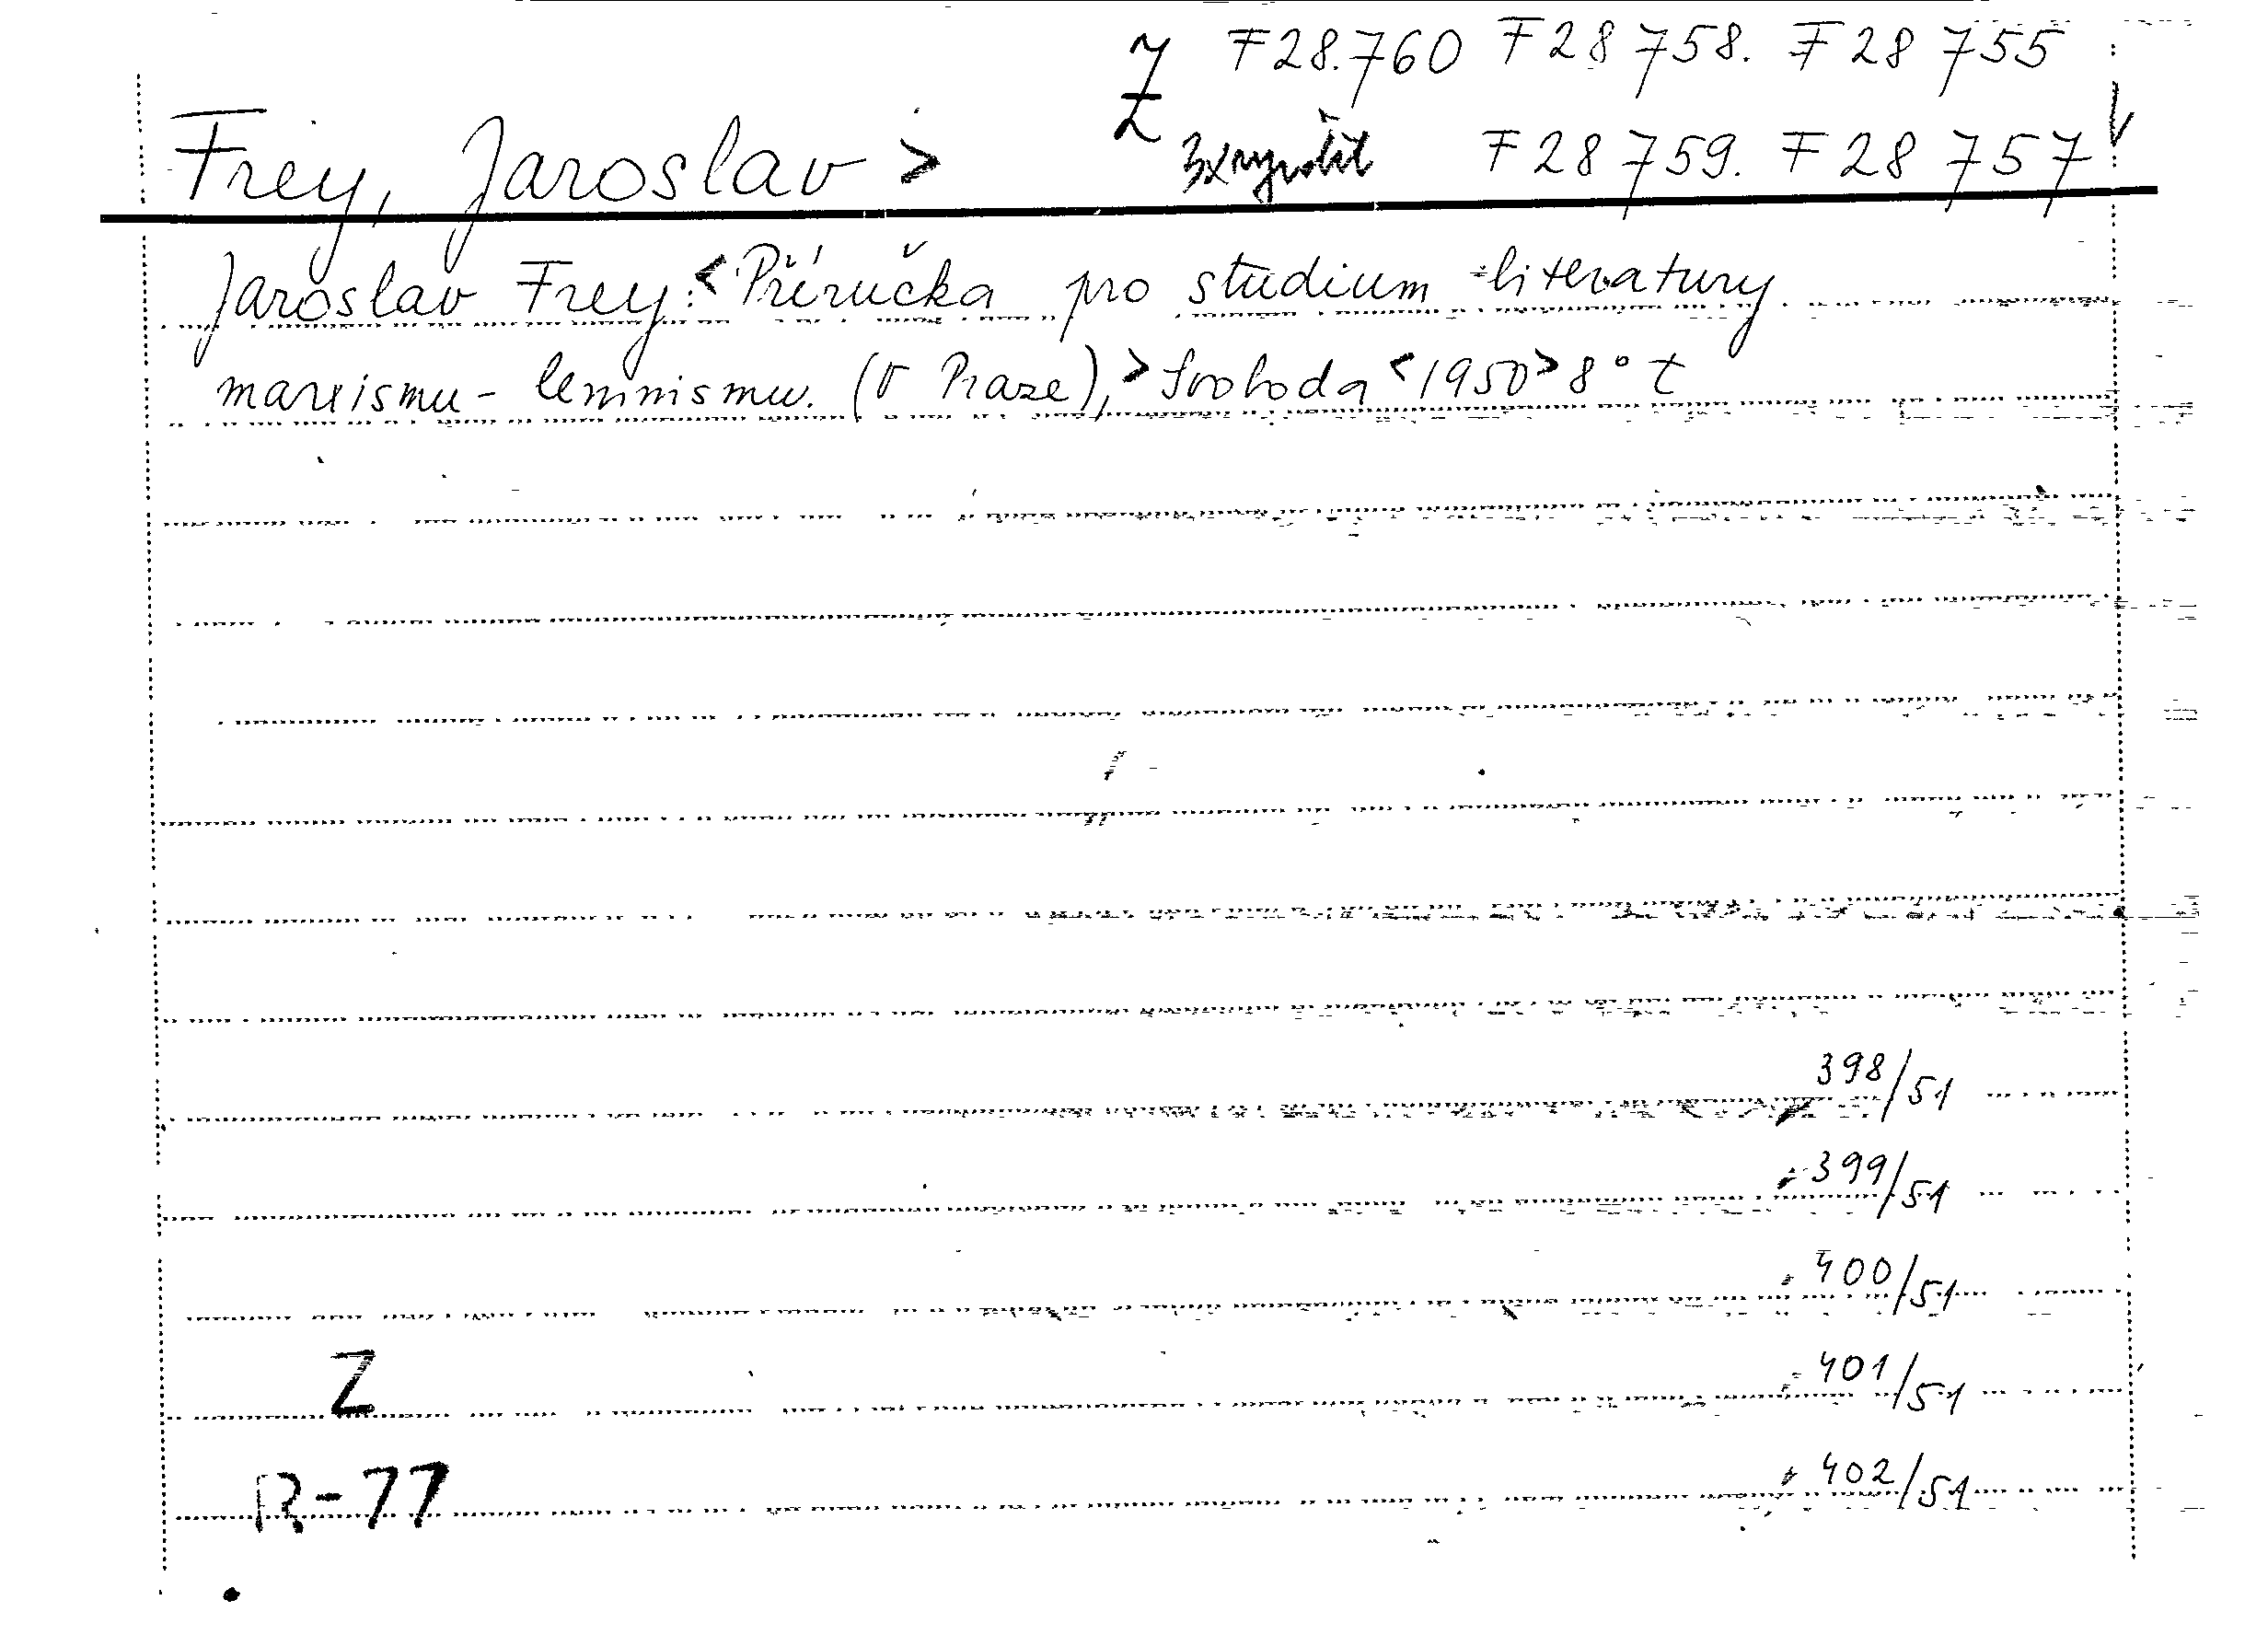 Z F 28.760 F 28 758. F 28 755
Frey, Jaroslav > 3x F 28 759. F 28 757
Jaroslav Frey: <Příručka pro studium literatury
marxismu-leninismu. (V Praze), > Svoboda <1950> 8° t
398/51
399/51
400/51
Z 401/51
R-77 402/51